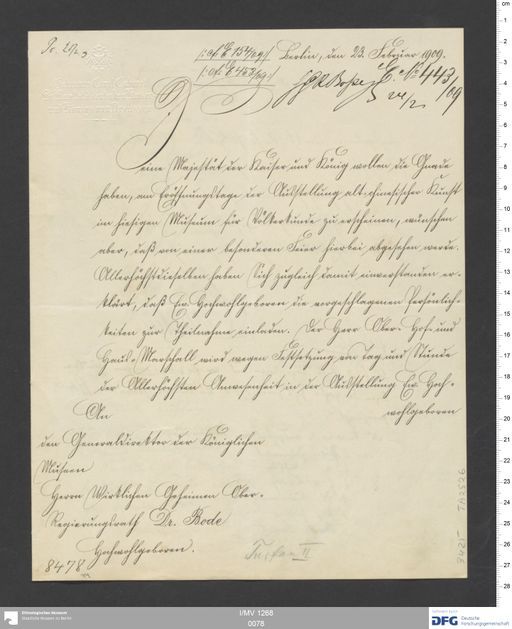 /: cf. E 154/09 :/ Berlin, den 23. Februar 1909.
/: cf. E 452/09 :/
E. No 443/09
24/2
Seine Majestät der Kaiser und König wollen die Gnade
haben, am Eröffnungstage der Ausstellung altchinesischer Kunst
im hiesigen Museum für Völkerkunde zu erscheinen, wünschen
aber, daß von einer besonderen Feier hierbei abgesehen werde.
Allerhöchstdieselben haben Sich zugleich damit einverstanden er-
klärt, daß Ew. Hochwohlgeboren die vorgeschlagenen Persönlich-
keiten zur Theilnahme einladen. Der Herr Ober- Hof- und
Haus-Marschall wird wegen Festsetzung von Tag und Stunde
der Allerhöchsten Anwesenheit in der Ausstellung Ew. Hoch-
wohlgeboren
An
den Generaldirektor der Königlichen
Museen
Herrn Wirklichen Geheimen Ober-
Regierungsrath Dr. Bode
Hochwohlgeboren.
8478
I/MV 1268
0078
Ethnologisches Museum
Staatliche Museen zu Berlin
DFG Deutsche
Forschungsgemeinschaft